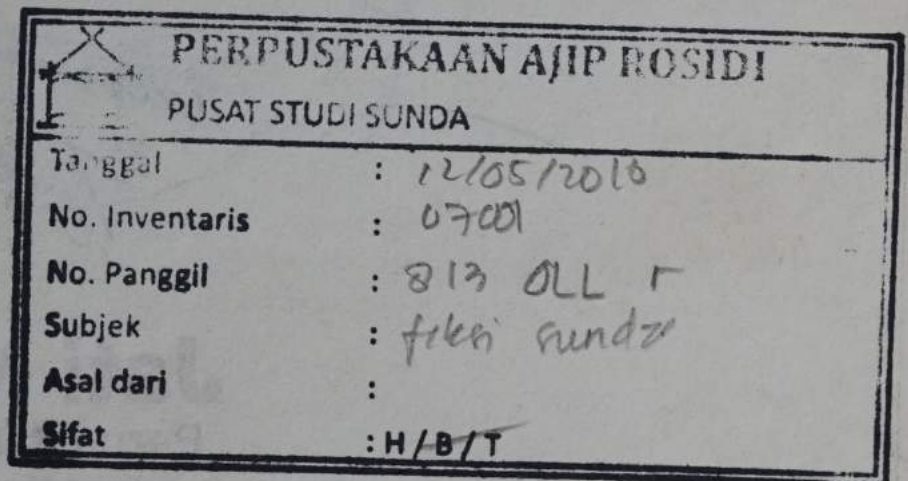 PERPUSTAKAAN AJIP ROSIDI
PUSAT STUDI SUNDA
Tanggal : 12/05/2010
No. Inventaris : 07001
No. Panggil : 813 OLL r
Subjek : fiksi sunda
Asal dari :
Sifat : H / B / T